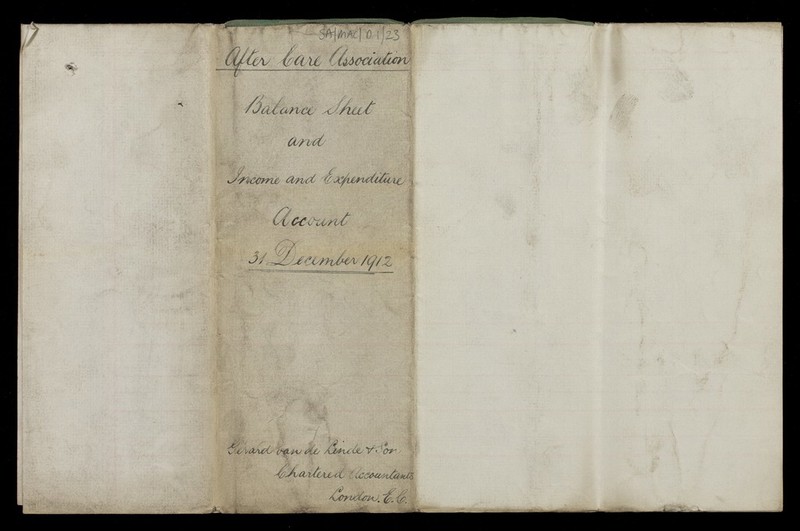 SA/MAC/D.1/23
After Care Association
Balance Sheet
and
Income and Expenditure
Account
31 December 1912
Gérard van de Linde & Son
Chartered Accountants
London. E.C.